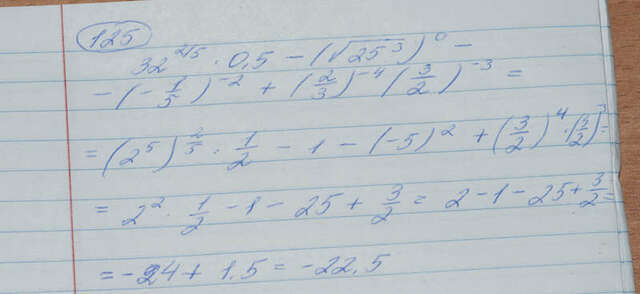 125
32^{2/5} · 0,5 - (√25³)^0 -
- (-1/5)^{-2} + (2/3)^{-4} (3/2)^{-3} =
= (2^5)^{2/5} · 1/2 - 1 - (-5)^2 + (3/2)^4 · (3/2)^{-3} =
= 2^2 · 1/2 - 1 - 25 + 3/2 = 2 - 1 - 25 + 3/2 =
= -24 + 1.5 = -22.5